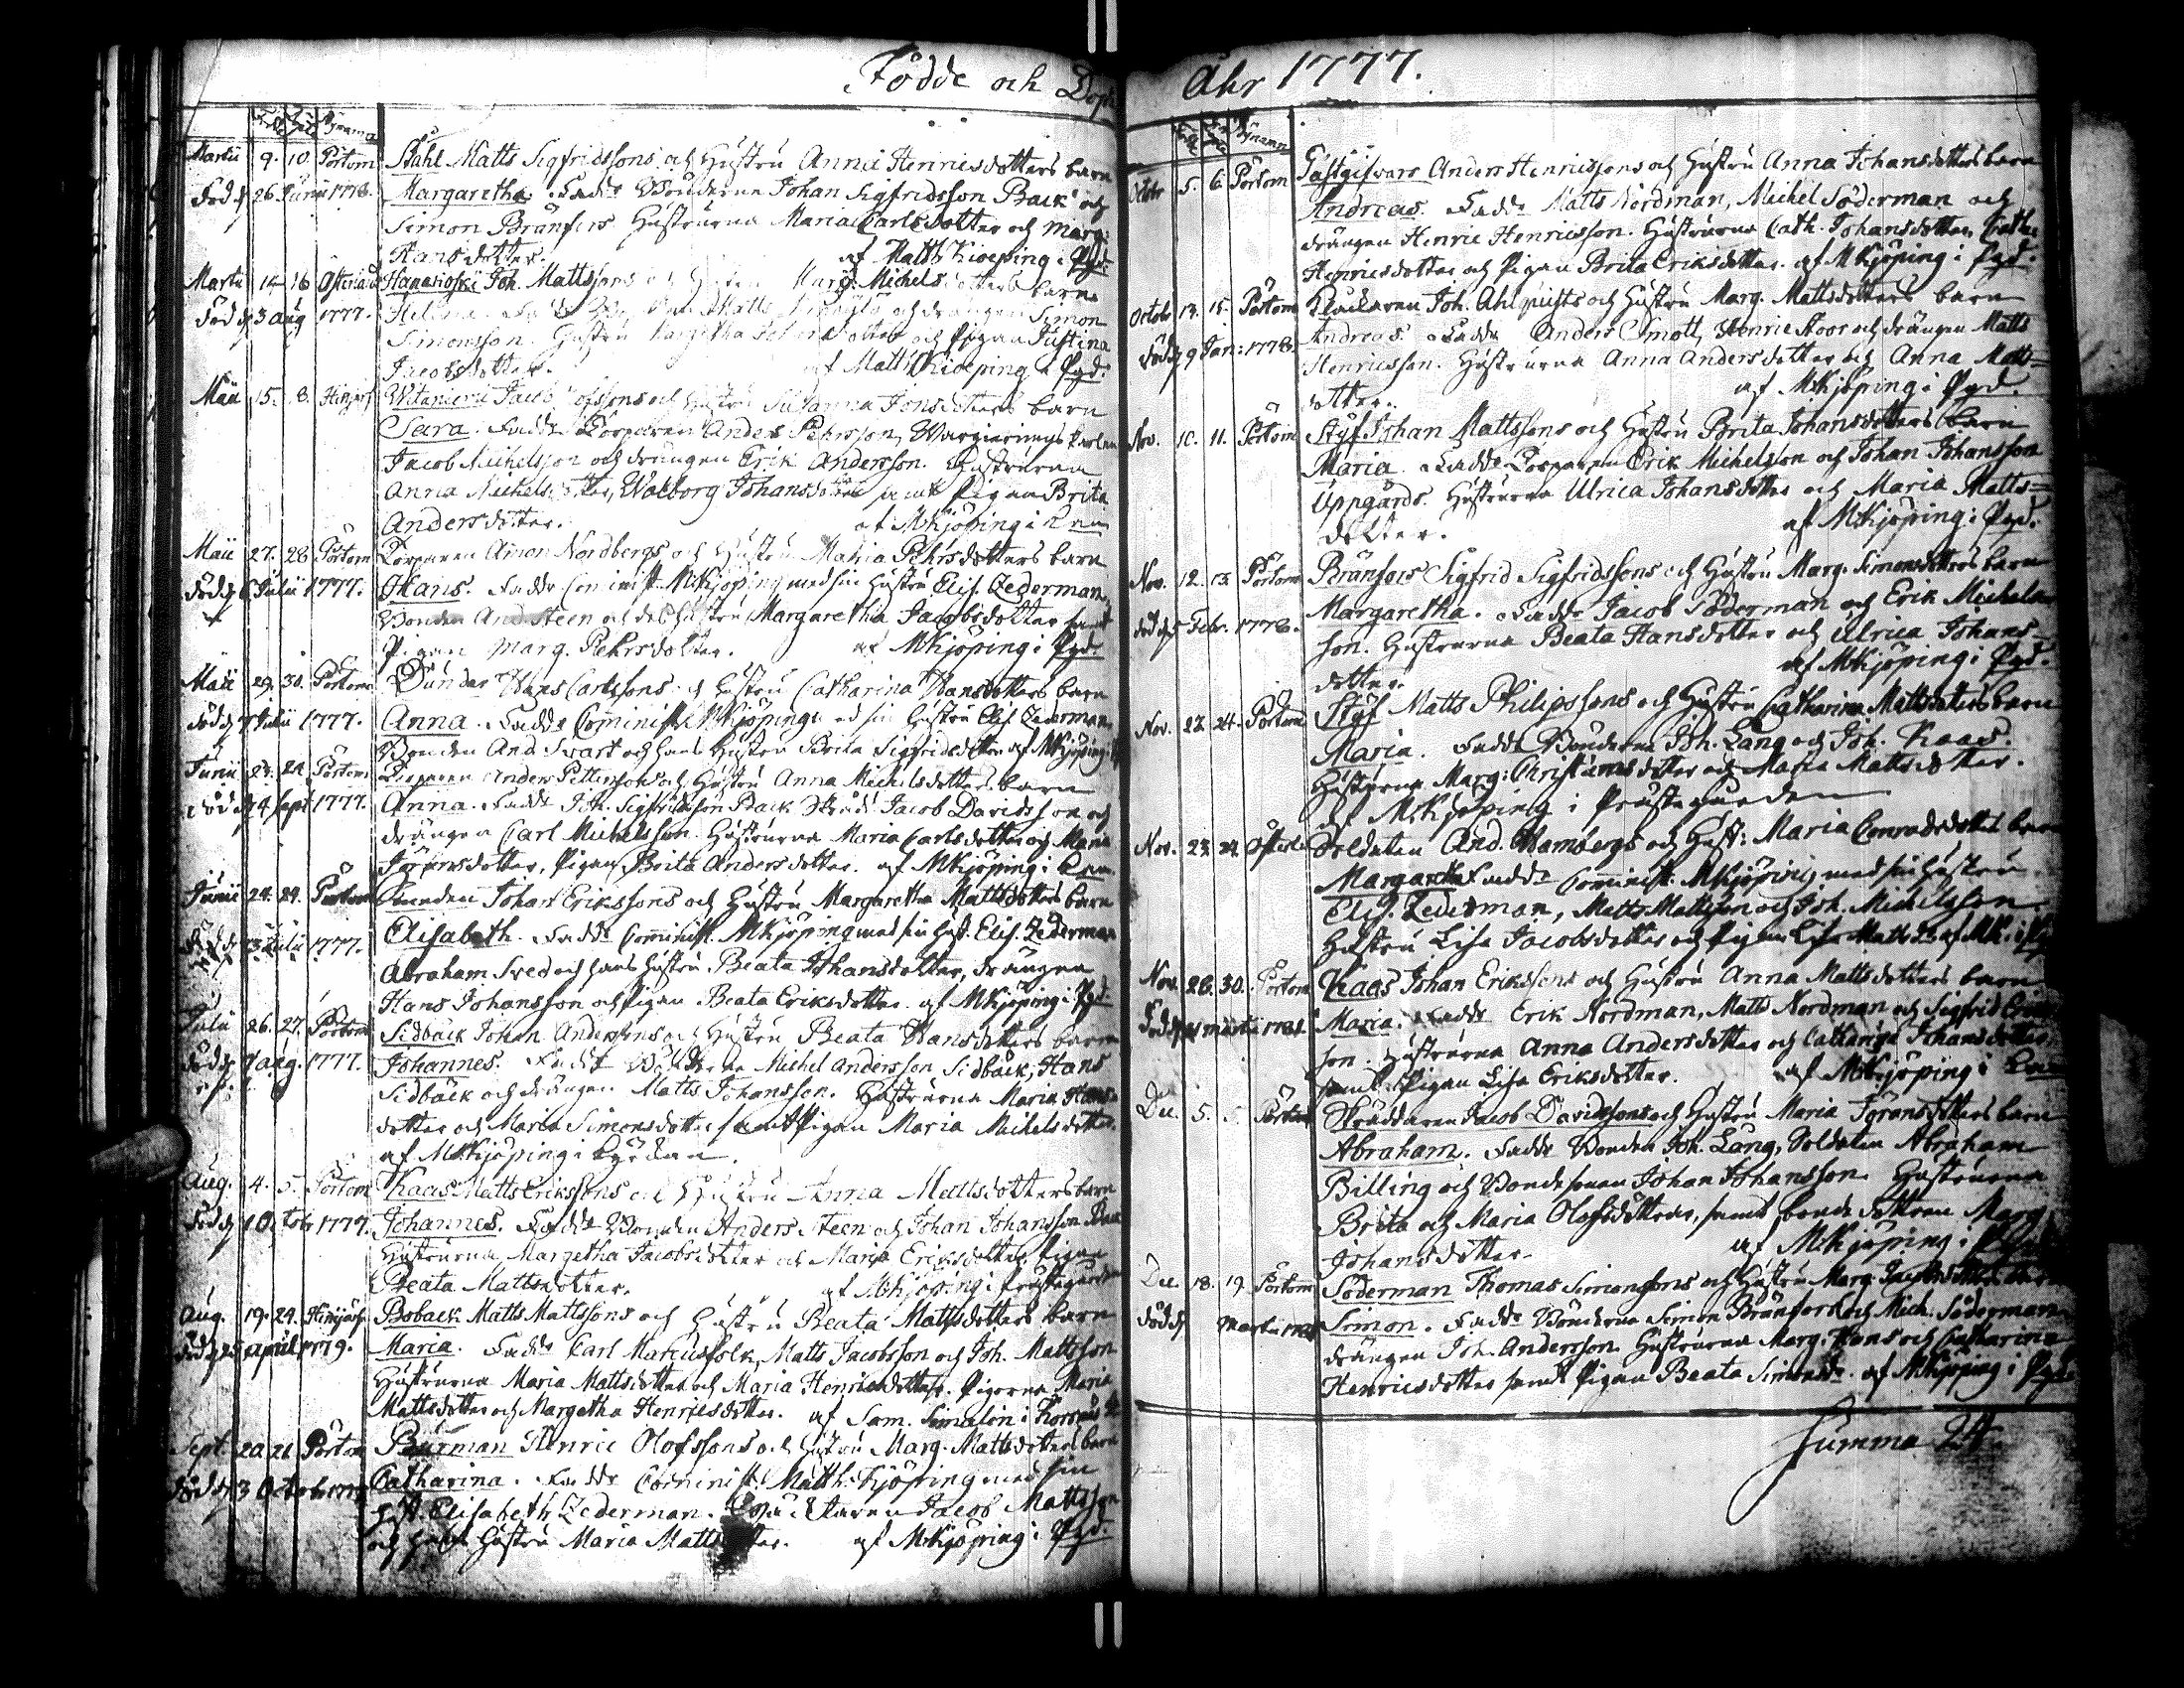 Födde och Döpte
Martii 9. 10. Pörtom Ståhl Matts Sigfridssons och Hustru Anna Henricsdotters barn
död d 26 Junii 1778. Margaretha. Fadd. Bönderne Johan Sigfridsson Back och
Simon Bränfors Hustrurna Maria Carlsdotter och Marg:
Hansdotter. af Matth Kiöping i Pgd.
Martii 14 16 Joh. Mattssons och Marg. Michelsdotters barn
död d 3 Aug 1777. Helena. och drängen Simon
Simonsson. Hustru och Pigan Justina
Jacobsdotter. af Matth Kiöping i Pgd.
Maii 15. 8. Jacob och Hustru Susanna Jonsdotters barn
Sara. Fadd. Torparen Anders Pehrsson,
Jacob Michelsson och drängen Erik Andersson. Hustrurna
Anna Michelsdotter, Walborg Johansdotter samt Pigan Brita
Andersdotter. af MKjöping i
Maii 27. 28 Pörtom Torparen Nordbergs och Hustru Maria Pehrsdotters barn
död d 6 Julii 1777. Hans. Fadd. Cominist. MKjöping med sin Hustru Elis. Zederman,
Bonden And Steen och dess Hustru Margaretha Jacobsdotter samt
Pigan Marg. Pehrsdotter. af MKjöping i Pgd.
Maii 29. 30. Pörtom Hans Carlssons och Hustru Catharina Hansdotters barn
död d 7 Julii 1777. Anna. Fadd. Cominist. MKjöping med sin Hustru Elis Zederman
Bonden And. Svart och hans Hustru Brita Sigfridsdotter af MKjöping i
Junii Pörtom Torparen Anders Pettersons och Hustru Anna Michelsdotters barn
död d 4 Sept 1777. Anna. Fadd. Joh. Sigfridsson Back Skräd. Jacob Davidsson och
drängen Carl Michelsson. Hustrurna Maria Carlsdotter och Maria
Jöransdotter, Pigan Brita Andersdotter. af MKjöping i
Junii 24. 24. Pörtom Johan Erikssons och Hustru Margaretha Mattsdotters barn
död d 13 Julii 1777. Elisabeth. Fadd. Cominist. MKjöping med sin Hust. Elis. Zederman
Abraham Sved och hans Hustru Beata Johansdotter, drängen
Hans Johansson och Pigan Beata Eriksdotter. af MKjöping i Pgd
Julii 26. 27. Pörtom Sidbäck Johan Anderssons och Hustru Beata Hansdotters barn
död d 7 Aug. 1777. Johannes. Fadd. Bönderne Michel Andersson Sidbäck, Hans
Sidbäck och drängen Matts Johansson. Hustrurna Maria Hans
dotter och Maria Simonsdotter samt Pigan Maria Michelsdotter.
af MKjöping i Kyrckan.
Aug. 4. 5. Pörtom Kaas Matts Erikssons och Hustru Anna Mattsdotters barn
död d 1 Octob 1777. Johannes. Fadd. Bonden Anders Steen och Johan Johansson
Hustrurna Margetha Jacobsdotter och Maria Eriksdotter, Pigan
Beata Mattsdotter. af MKjöping i Prästegården
Aug. 19. 24. Boback Matts Mattssons och Hustru Beata Mattsdotters barn
död d 25 April 1779. Maria. Fadd. Carl Marcusfolk, Matts Jacobsson och Joh. Mattsson
Hustrurna Maria Mattsdotter och Maria Henricsdotter. Pigorna Maria
Mattsdotter och Margetha Henricsdotter. af Sam. i
Sept. 20 21 Pörtom Burman Henric Olofssons och Hustru Marg. Mattsdotters barn
död d 3 Octob Catharina. Fadd. Cominist. Matth. Kjöping med sin
H. Elisabeth Zederman. Jacob Mattsson
och Hustru Maria Mattsdotter. af MKjöping i Pgd.
Åhr 1777.
Octobr 5. 6. Pörtom Gästgifvars Anders Henricssons och Hustru Anna Johansdotters barn
Andreas. Fadd. Matts Nordman, Michel Söderman och
drängen Henric Henricsson. Hustrurna Cath. Johansdotter, Cath.
Henricsdotter och Pigan Brita Eriksdotter. af MKjöping i Pgd.
Octob. 13. 15. Pörtom Klockaren Joh. Ahlquists och Hustru Marg. Mattsdotters barn
död d 9 Jan: 1778. Andreas. Fadd. Anders Smått, Henric Stoor och drängen Matts
Henricsson. Hustrurna Anna Andersdotter och Anna Matts=
dotter. af MKjöping i Pgd.
Nov. 10. 11. Pörtom Styf Johan Mattssons och Hustru Brita Johansdotters barn
Maria. Fadd. Torparen Erik Michelsson och Johan Johansson
Uppgårds. Hustrurna Ulrica Johansdotter och Maria Matts=
dotter. af MKjöping i Pgd.
Nov. 12. 13. Pörtom Bränfors Sigfrid Sigfridssons och Hustru Marg. Simonsdotters barn
död d Febr. 1778. Margaretha. Fadd. Jacob Söderman och Erik Michels
son. Hustrurna Beata Hansdotter och Ulrica Johans=
dotter. af MKjöping i Pgd.
Nov. 23. 24. Pörtom Styf Matts Philipssons och Hustru Catharina Mattsdotters barn
Maria. Fadd. Bönderne Joh. Lång och Joh. Kaas.
Hustrurna Marg: Christiernsdotter och Maria Mattsdotter.
af MKjöping i Prästegården
Nov. 23. 24. Soldaten And. Hambergs och Hust: Maria Conradsdotters barn
Margaretha Fadd. Cominist. MKjöping med sin Hustru
Elis. Zederman, Matts Mattsson och Joh. Michelsson
Hustru Lisa Jacobsdotter och Pigan Lisa Matts D. af MK. i
Nov. 28. 30. Pörtom Kaas Johan Erikssons och Hustru Anna Mattsdotters barn
död d Martii 1781. Maria. Fadd. Erik Nordman, Matts Nordman och Sigfrid
son. Hustrurna Anna Andersdotter och Catharina Johansdotter
samt Pigan Lisa Eriksdotter. af MKjöping i
Dec. 5. 5. Pörtom Skräddaren Jacob Davidssons och Hustru Maria Jöransdotters barn
Abraham. Fadd. Bonden Joh. Lång, Soldaten Abraham
Billing och Bondesonen Johan Johansson. Hustrurna
Brita och Maria Olofsdöttrar, samt bondedottren Marg.
Johansdotter. af MKjöping i
Dec. 18. 19. Pörtom Söderman Thomas Simonssons och Hustru Marg. Jacobsdotters barn
död d Martii Simon. Fadd. Bönderne Simon Bränfors och Mich. Söderman
drängen Joh. Andersson. Hustrurna Marg. Hans och Catharina
Henricsdotter samt Pigan Beata Simonsdr. af MKjöping i Pgd
Summa 24